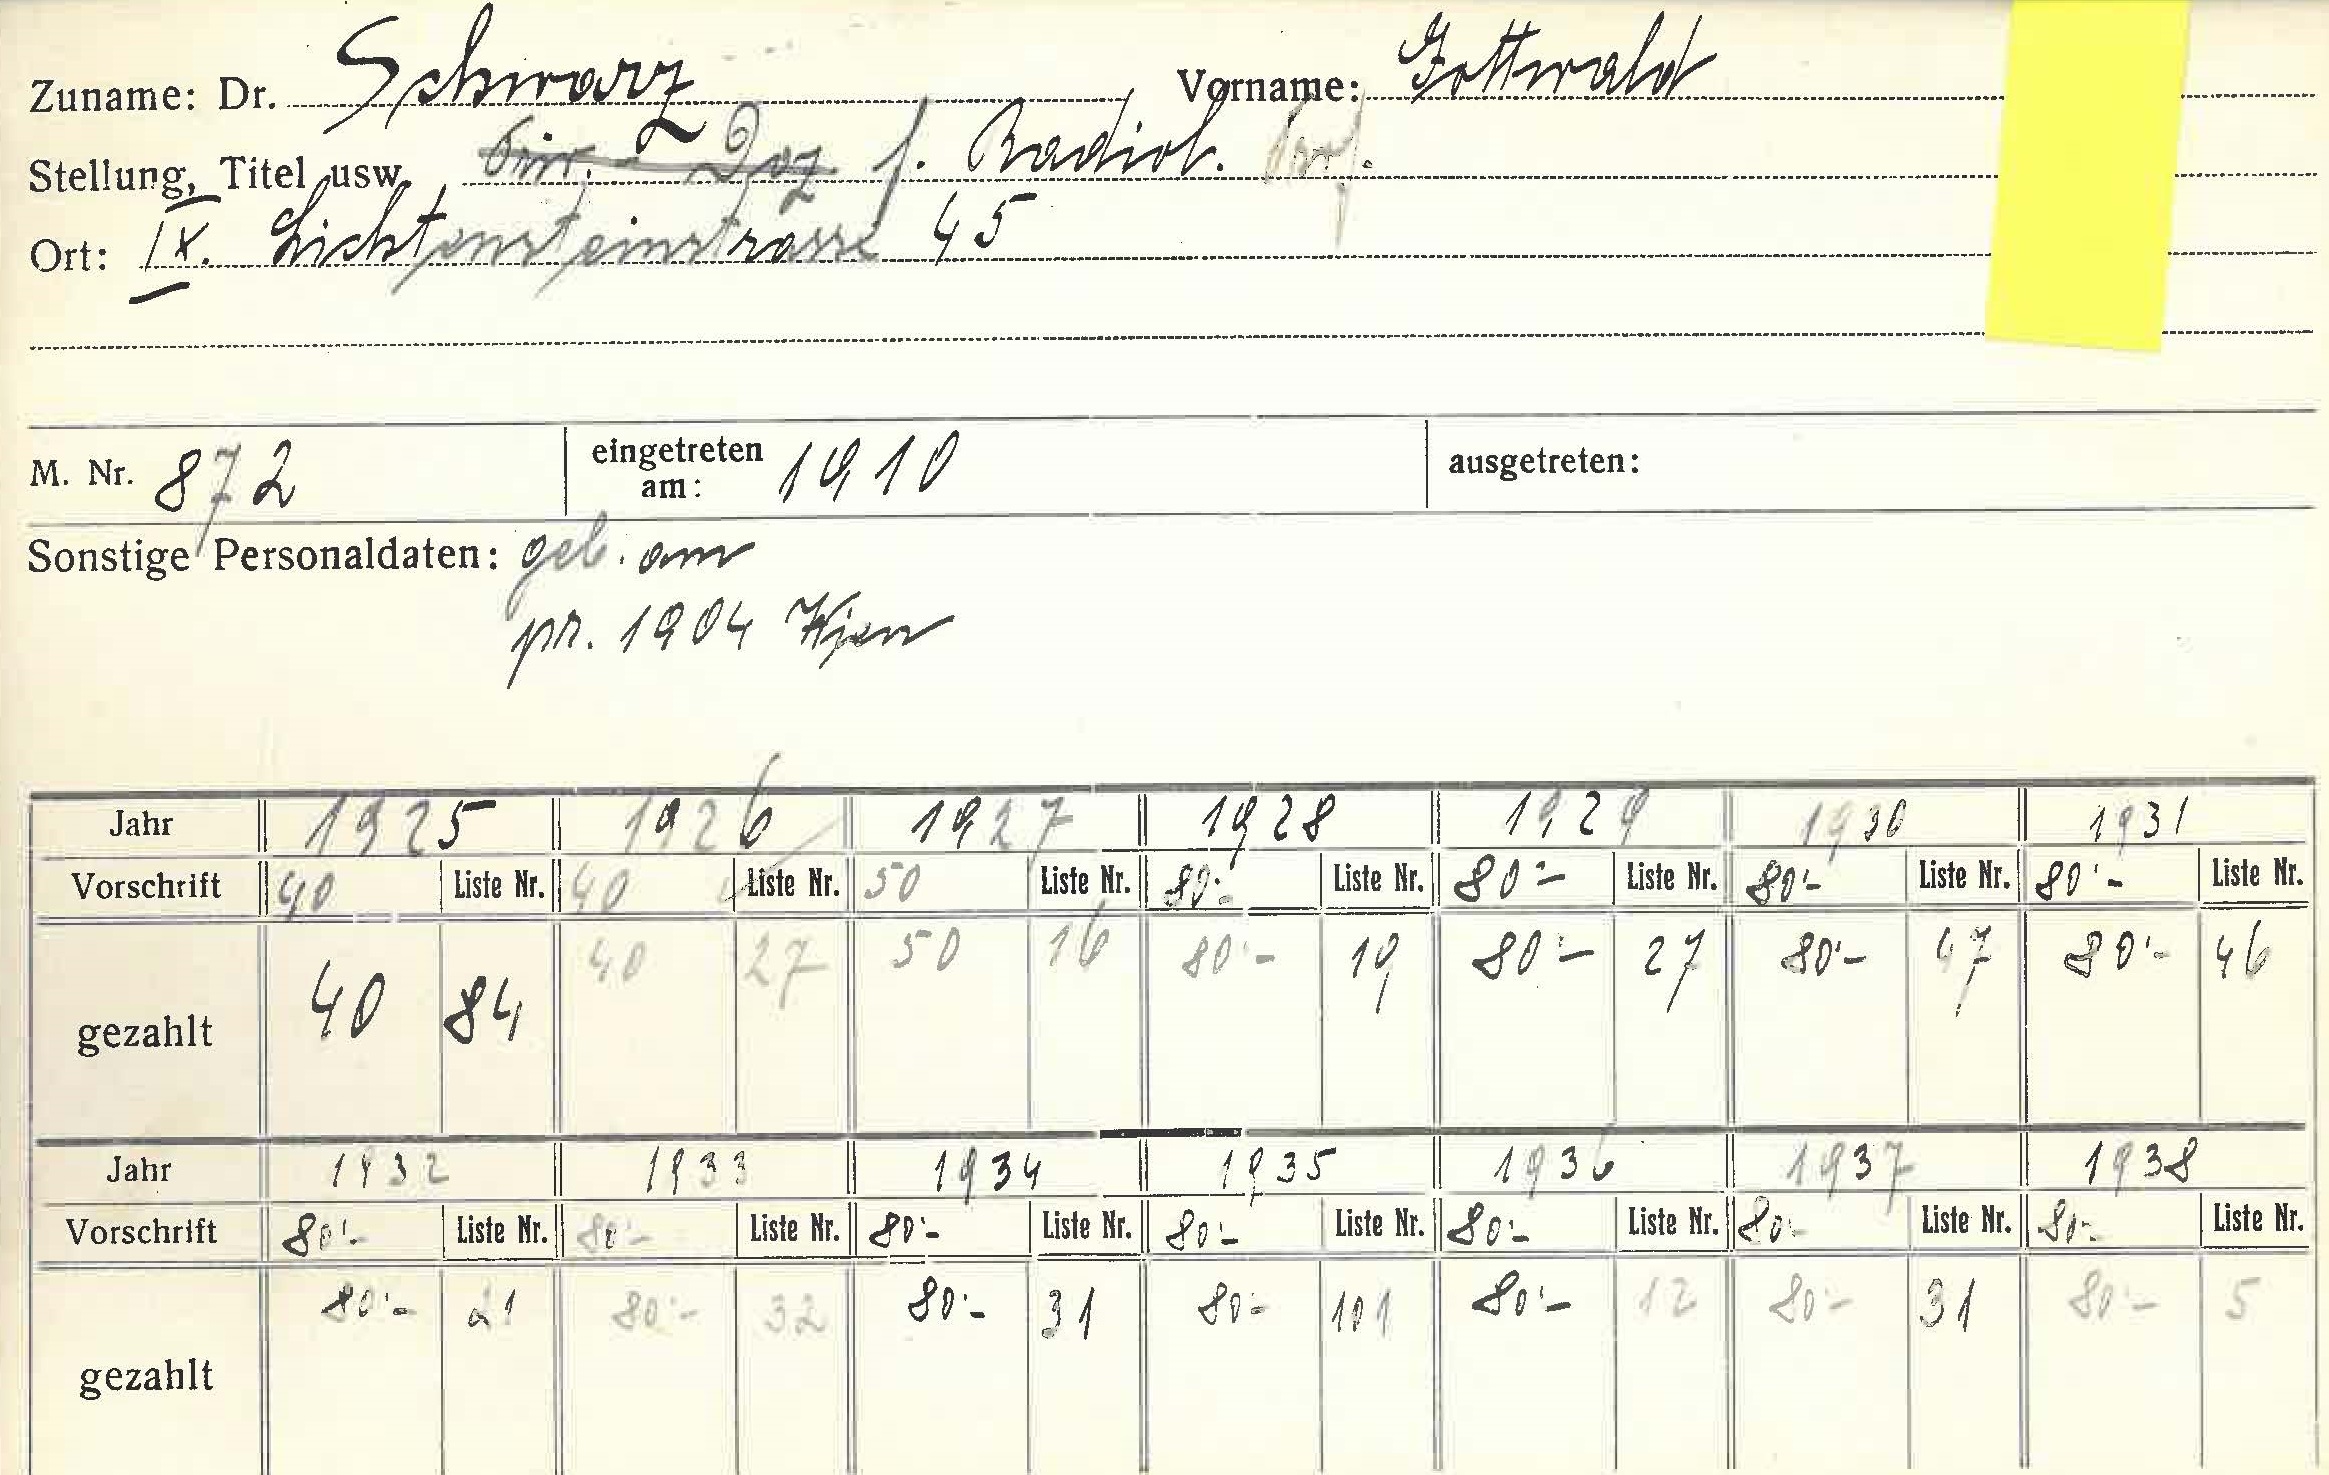 Zuname: Dr. Schwarz Vorname: Gottwald
Stellung, Titel usw. Doz f. Radiol. Prof.
Ort: IX. Lichtensteinstrasse 45
M. Nr. 872 eingetreten am: 1910 ausgetreten:
Sonstige Personaldaten: geb. am
pr. 1904 Wien
Jahr 1925 1926 1927 1928 1929 1930 1931
Vorschrift 40 Liste Nr. 40 Liste Nr. 50 Liste Nr. 80·- Liste Nr. 80·- Liste Nr. 80·- Liste Nr. 80·- Liste Nr.
gezahlt 40 84 40 27 50 16 80·- 19 80·- 27 80·- 47 80·- 46
Jahr 1932 1933 1934 1935 1936 1937 1938
Vorschrift 80·- Liste Nr. 80·- Liste Nr. 80·- Liste Nr. 80·- Liste Nr. 80·- Liste Nr. 80·- Liste Nr. 80·- Liste Nr.
gezahlt 80·- 21 80·- 32 80·- 31 80·- 101 80·- 12 80·- 31 80·- 5